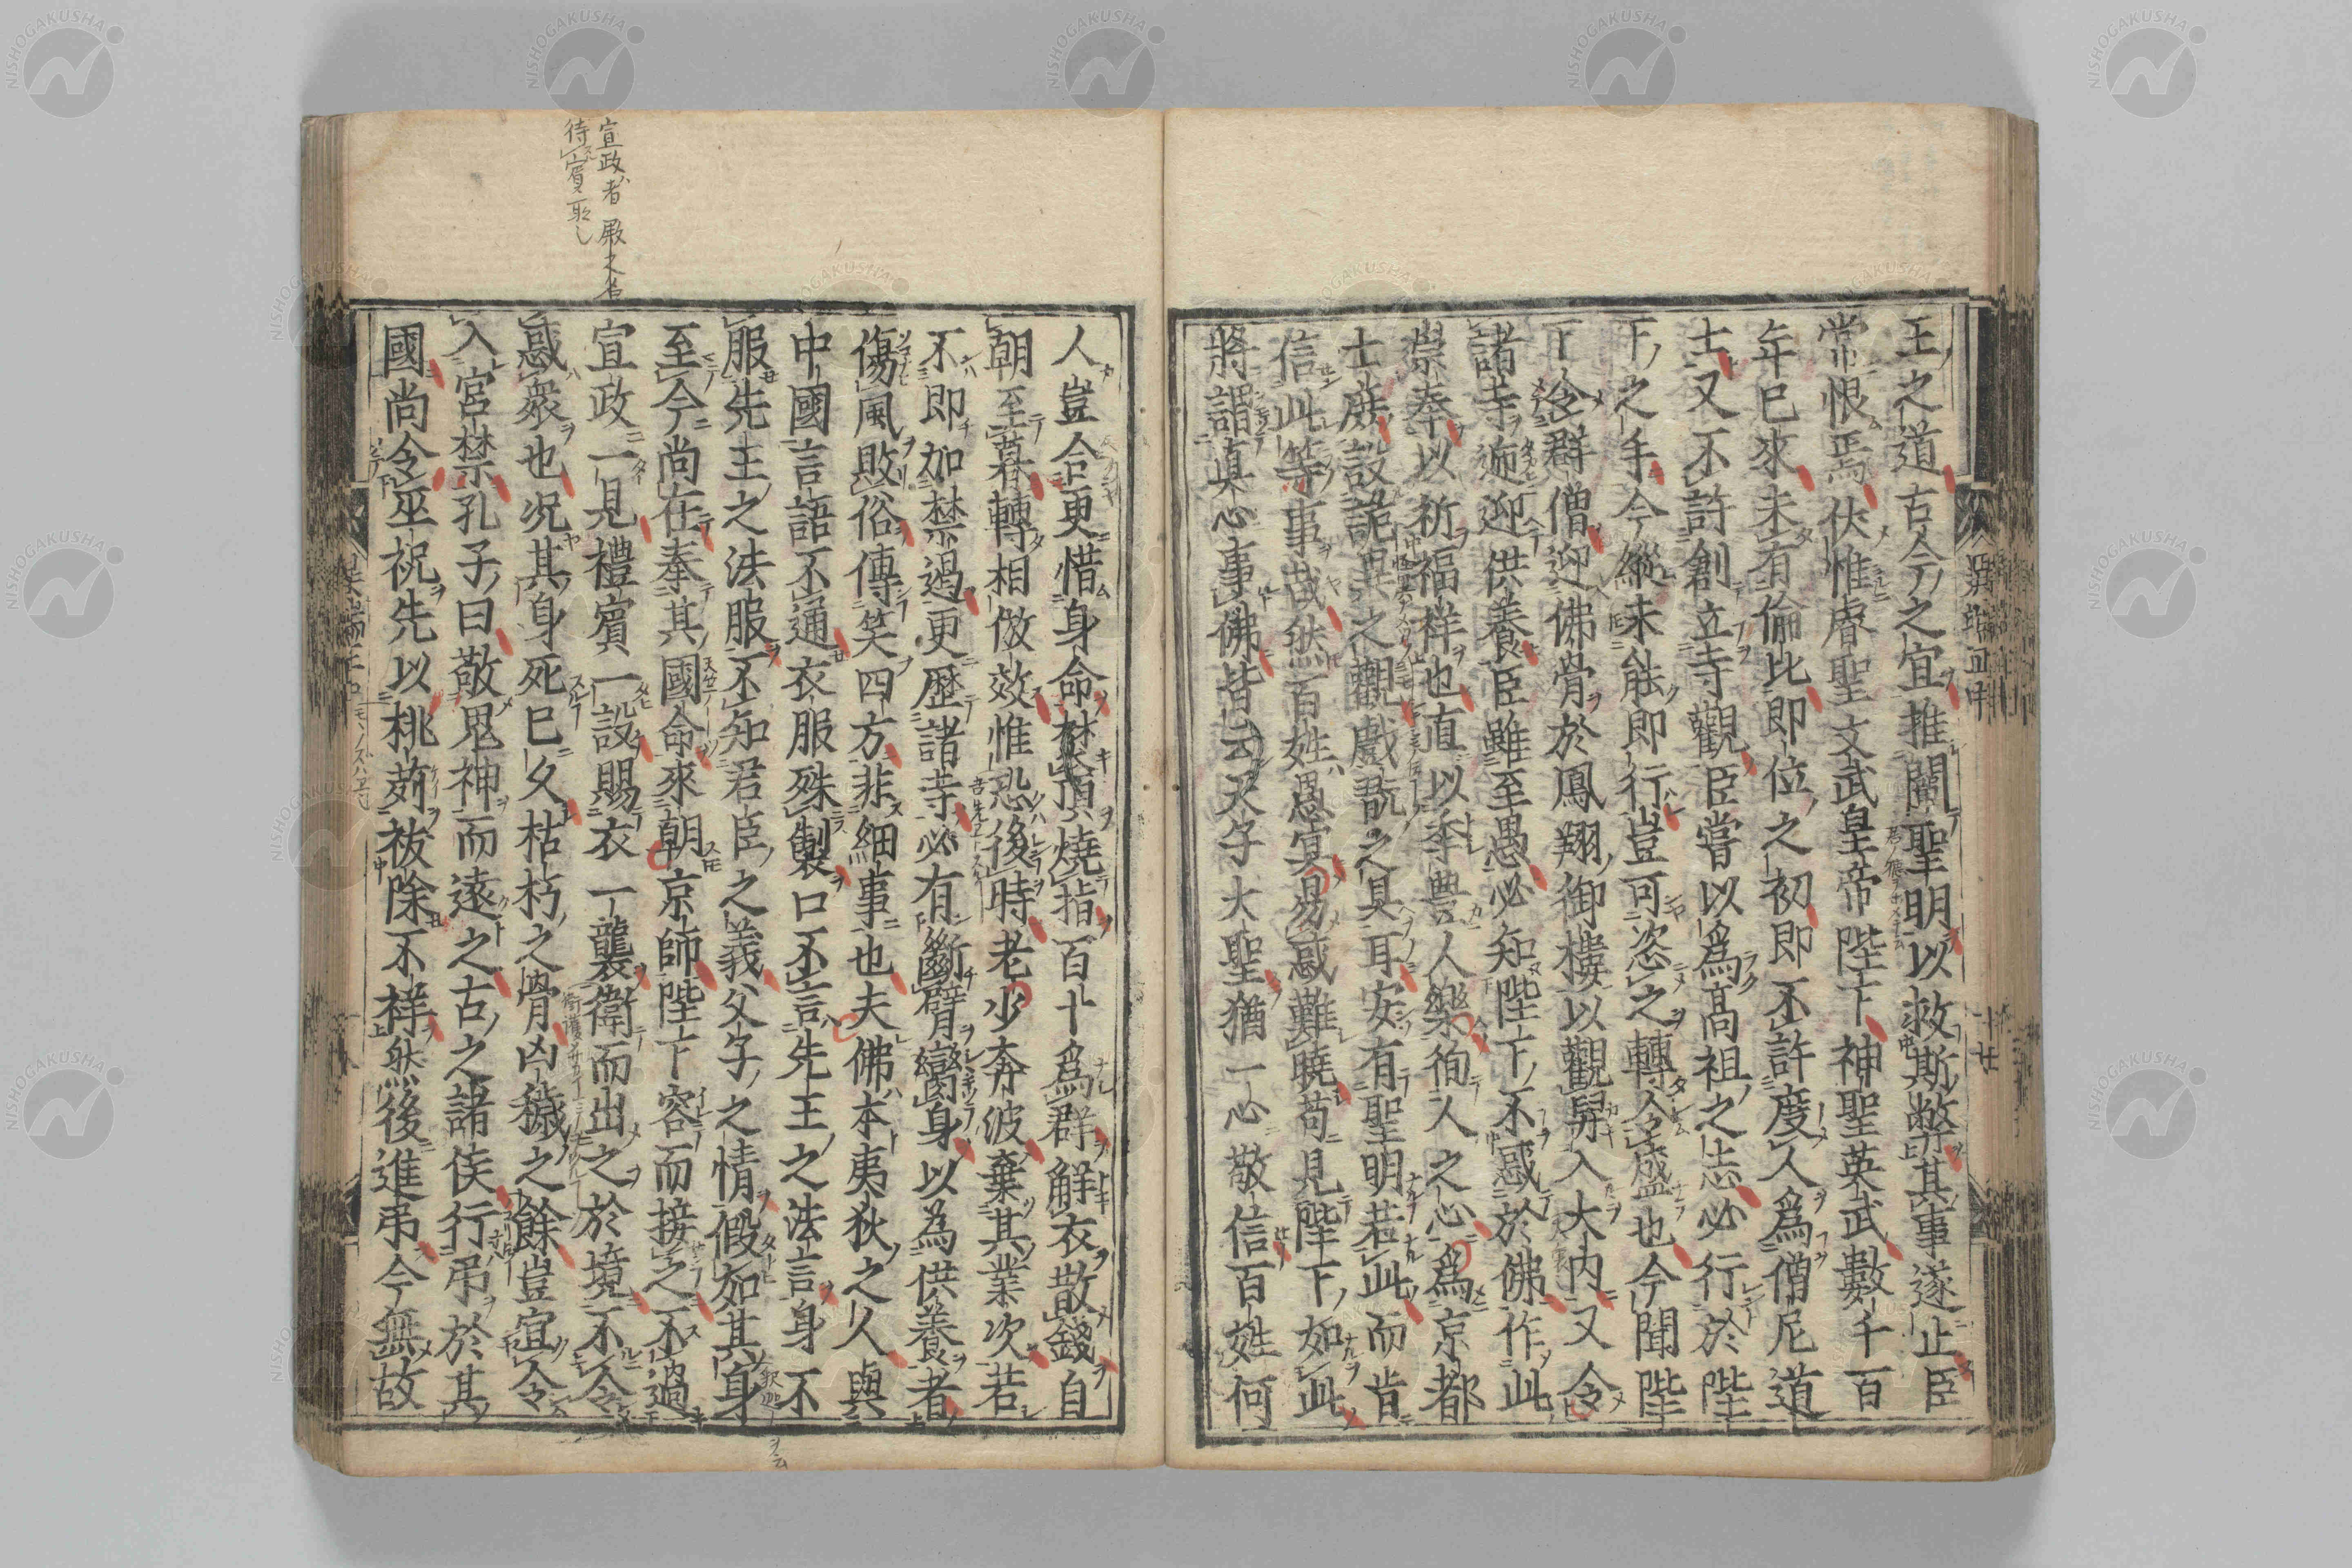 王之道古今之宜推闡聖明以救斯弊其事遂止臣
常恨焉伏惟睿聖文武皇帝陛下神聖英武數千百
年已來未有倫比即位之初即不許度人爲僧尼道
士又不許創立寺觀臣嘗以爲高祖之志必行於陛
下之手今縱未能即行豈可恣之轉令盛也今聞陛
下令群僧迎佛骨於鳳翔御樓以觀舁入大內又令
諸寺遞迎供養臣雖至愚必知陛下不惑於佛作此
崇奉以祈福祥也直以季豊人樂徇人之心爲京都
士庶設詭異之觀戲翫之具耳安有聖明若此而肯
信此等事哉然百姓愚冥易惑難曉苟見陛下如此
將謂真心事佛皆云天子大聖猶一心敬信百姓何
宣政者殿之名
待賓取し
人豈合更惜身命焚頂燒指百十爲群解衣散錢自
朝至暮轉相倣效惟恐後時老少奔波棄其業次若
不即加禁遏更歷諸寺必有斷臂臠身以為供養者
傷風敗俗傳笑四方非細事也夫佛本夷狄之人與
中國言語不通衣服殊製口不言先王之法言身不
服先王之法服不知君臣之義父子之情假如其身
至今尚在奉其國命來朝京師陛下容而接之不過
宣政一見禮賓一設賜衣一襲衛而出之於境不令
惑衆也况其身死已久枯朽之骨凶穢之餘豈宜令
入宮禁孔子曰敬鬼神而遠之古之諸侯行弔於其
國尚令巫祝先以桃茢祓除不祥然後進弔今無故